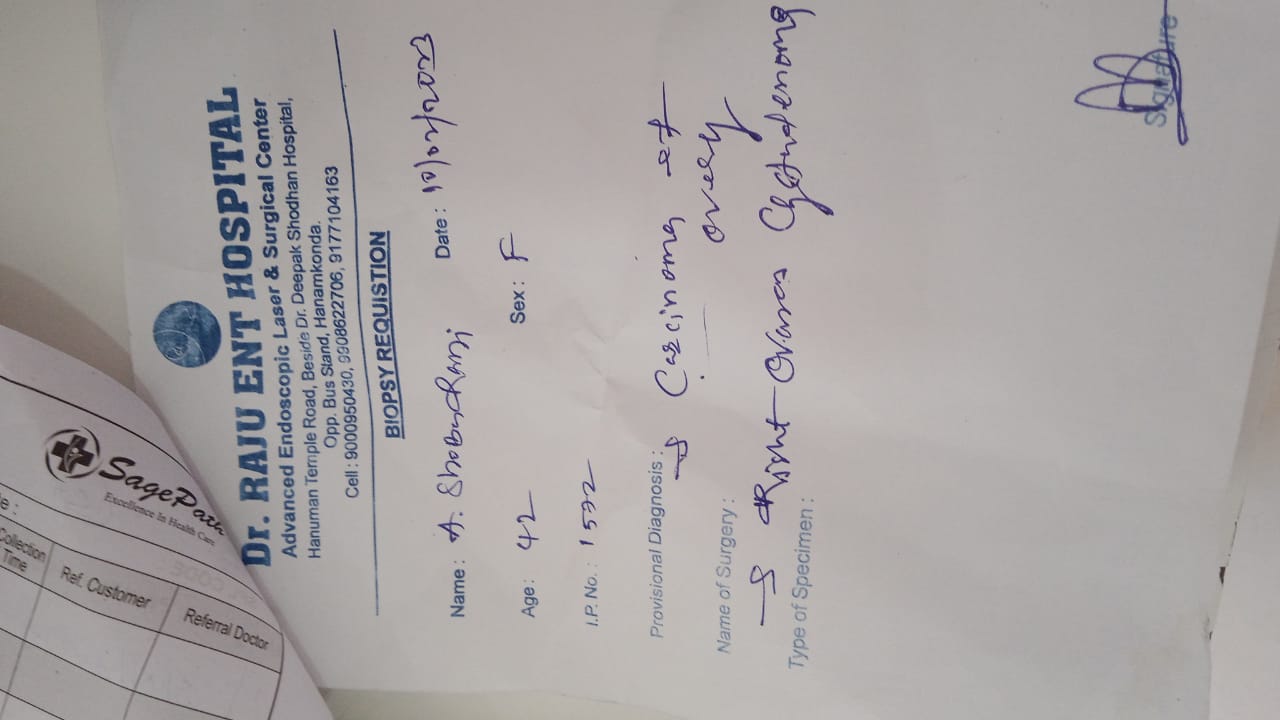 Dr. RAJU ENT HOSPITAL
Advanced Endoscopic Laser & Surgical Center
Hanuman Temple Road, Beside Dr. Deepak Shodhan Hospital,
Opp. Bus Stand, Hanamkonda.
Cell : 9000950430, 9908622706, 9177104163
BIOPSY REQUISTION
Name : A. Shobundrani Date : 10/02/2023
Age : 42 Sex : F
I.P. No. : 1522
Provisional Diagnosis : → Carcinoma of
ovary
Name of Surgery :
→ Right Ovarian Cystadenoma
Type of Specimen :
Signature
SagePath
Excellence In Health Care
Collection
Time
Ref. Customer
Referral Doctor